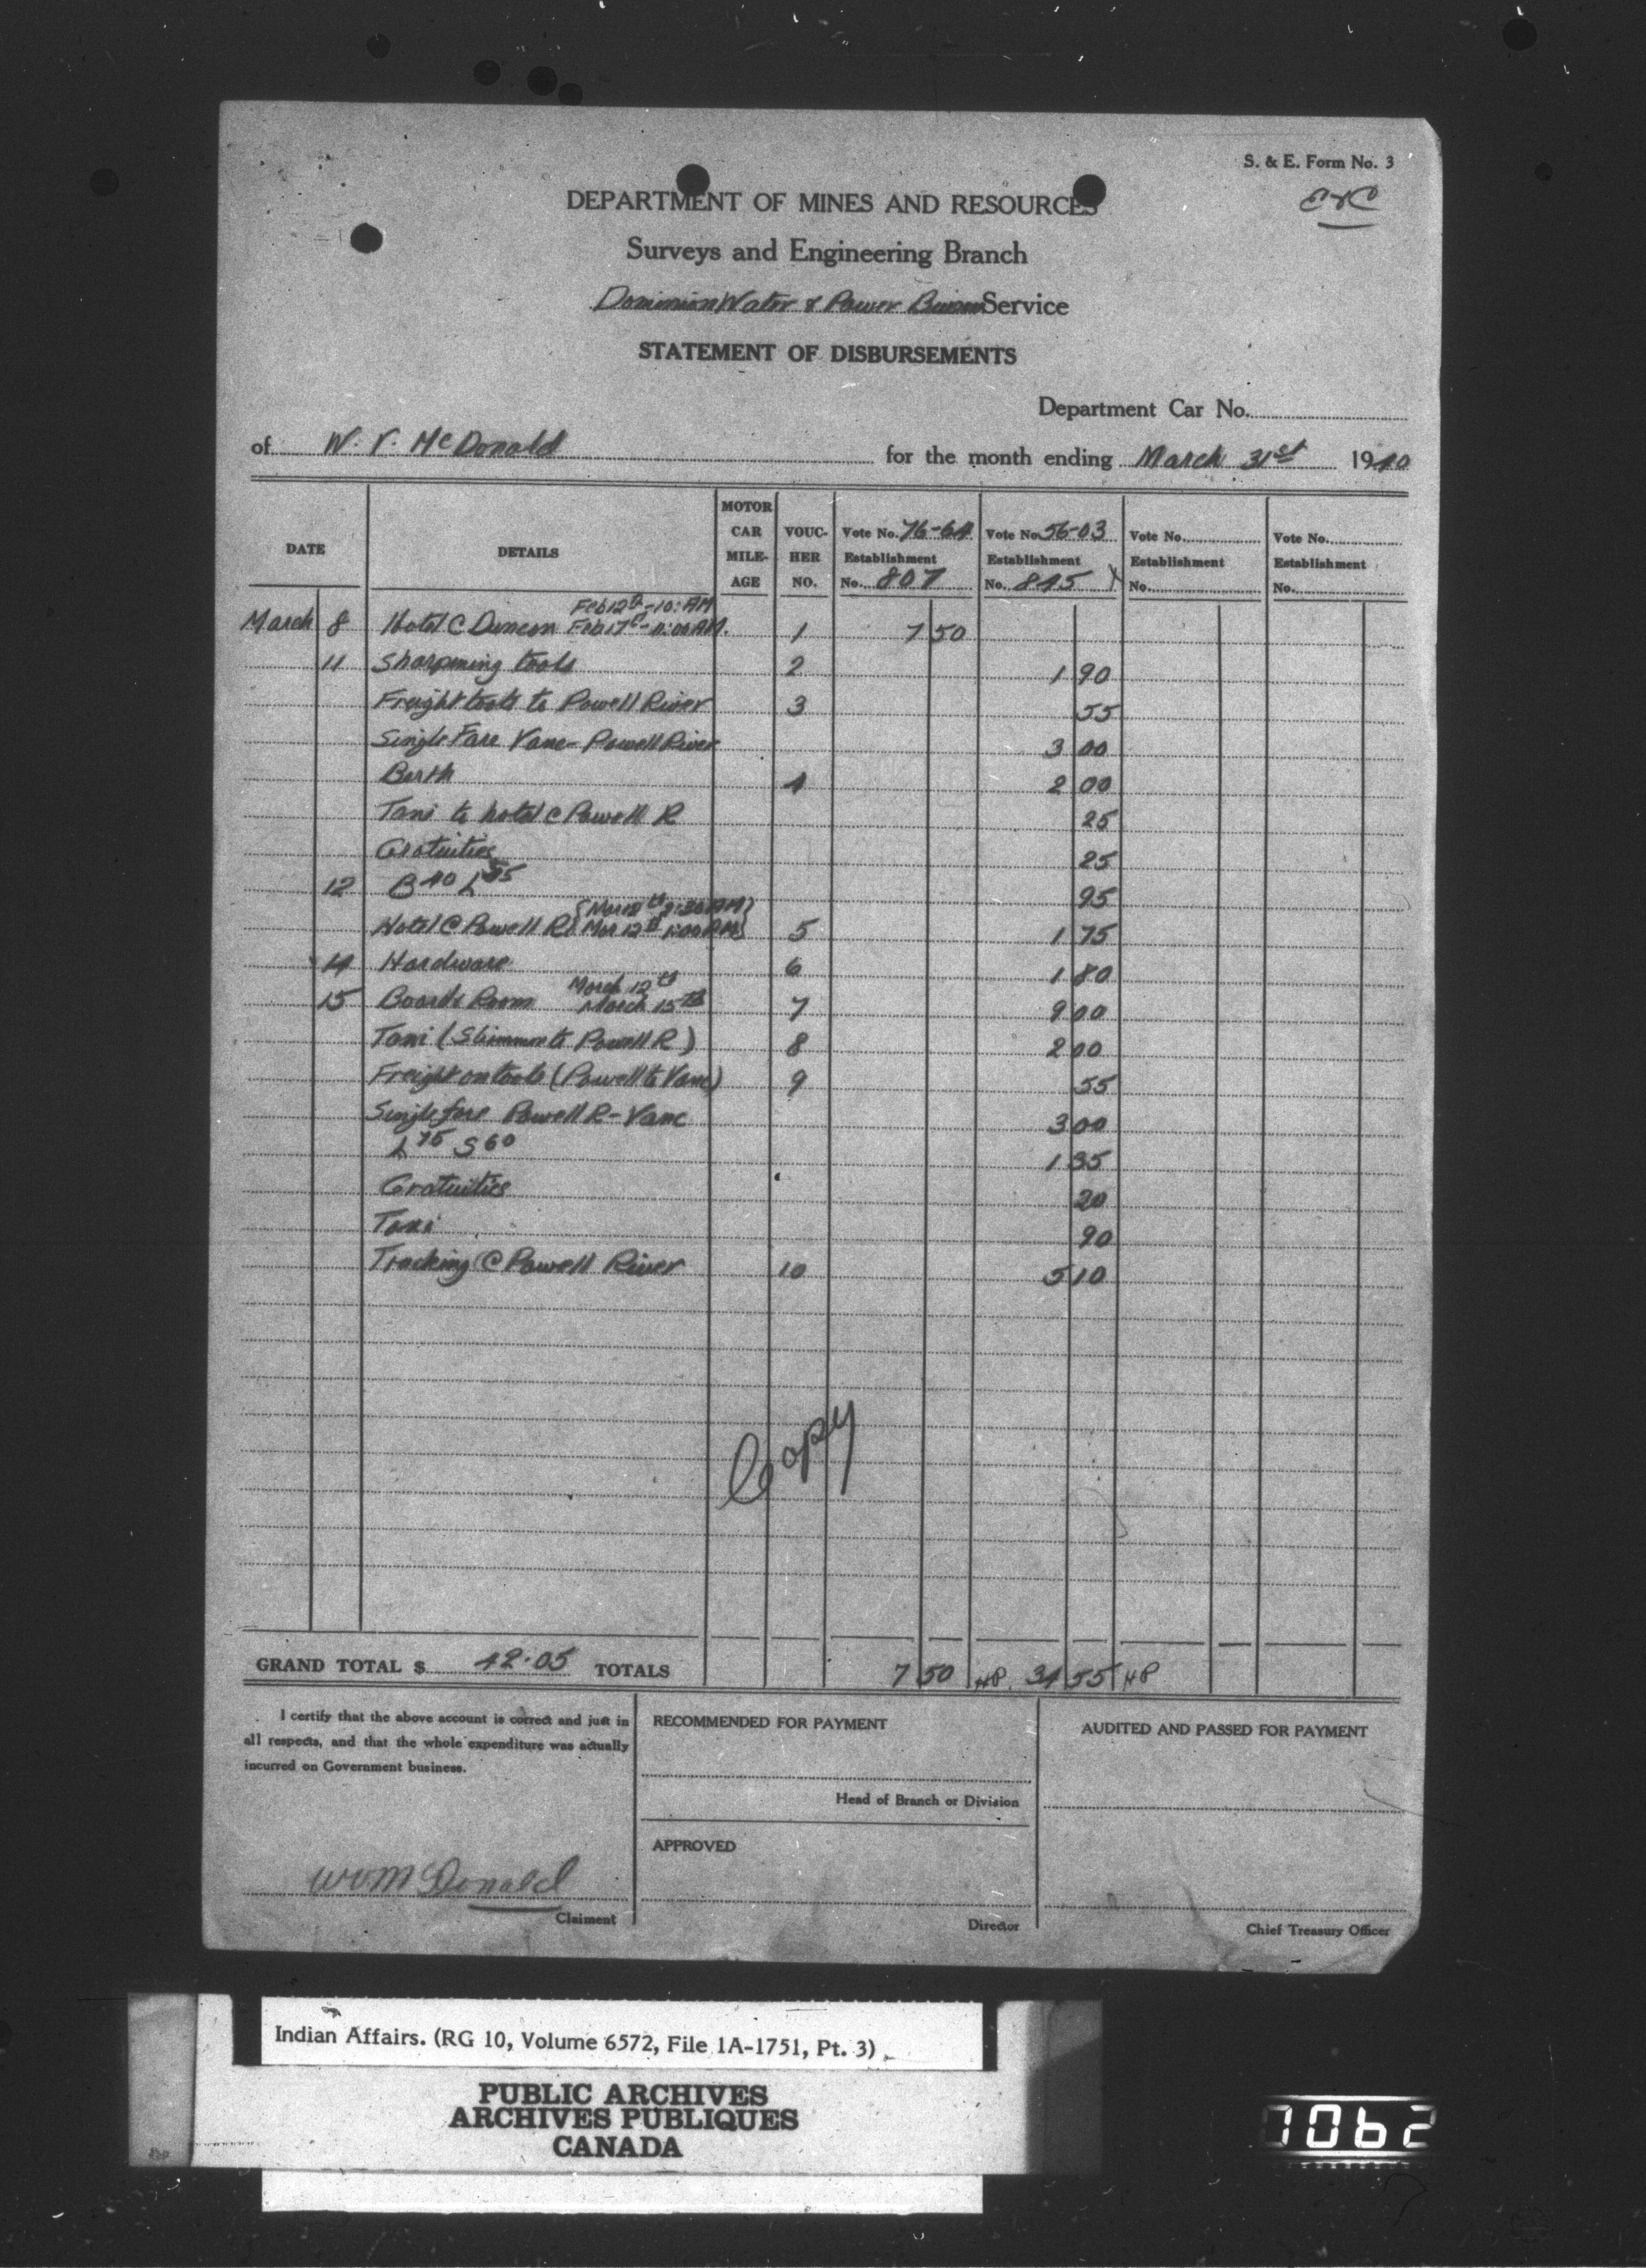 S. & E. Form No. 3
DEPARTMENT OF MINES AND RESOURCES
Surveys and Engineering Branch
Dominion Water & Power Bureau Service
STATEMENT OF DISBURSEMENTS
Department Car No.
of W. V. McDonald for the month ending March 31st 1940
DATE DETAILS MOTOR CAR MILE-AGE VOUC-HER NO. Vote No. 76-64 Establishment No. 807 Vote No. 56-03 Establishment No. 845 Vote No. Establishment No. Vote No. Establishment No.
Feb 12th - 10: AM
March 8 Hotel @ Duncan Feb 17th - 11:00 AM. 1 7 50
11 Sharpening tools 2 1 90
Freight tools to Powell River 3 55
Single Fare Vanc - Powell River 3 00
Berth 4 2 00
Taxi to hotel @ Powell R 25
Gratuities 25
12 B 40 L 55 95
Hotel @ Powell R { Mar 12th 1:00 AM } 5 1 75
14 Hardware 6 1 80
March 12th
15 Board & Room March 15th 7 9 00
Taxi (Stillwater to Powell R) 8 2 00
Freight on tools (Powell to Vanc) 9 55
Single fare Powell R - Vanc 3 00
L 75 S 60 1 35
Gratuities 20
Taxi 90
Trucking @ Powell River 10 5 10
Copy
GRAND TOTAL $ 42.05 TOTALS 7 50 HP. 34 55 HP
I certify that the above account is correct and just in
all respects, and that the whole expenditure was actually
incurred on Government business.
WVMcDonald
Claimant
RECOMMENDED FOR PAYMENT
Head of Branch or Division
APPROVED
Director
AUDITED AND PASSED FOR PAYMENT
Chief Treasury Officer
Indian Affairs. (RG 10, Volume 6572, File 1A-1751, Pt. 3)
PUBLIC ARCHIVES
ARCHIVES PUBLIQUES
CANADA
1062